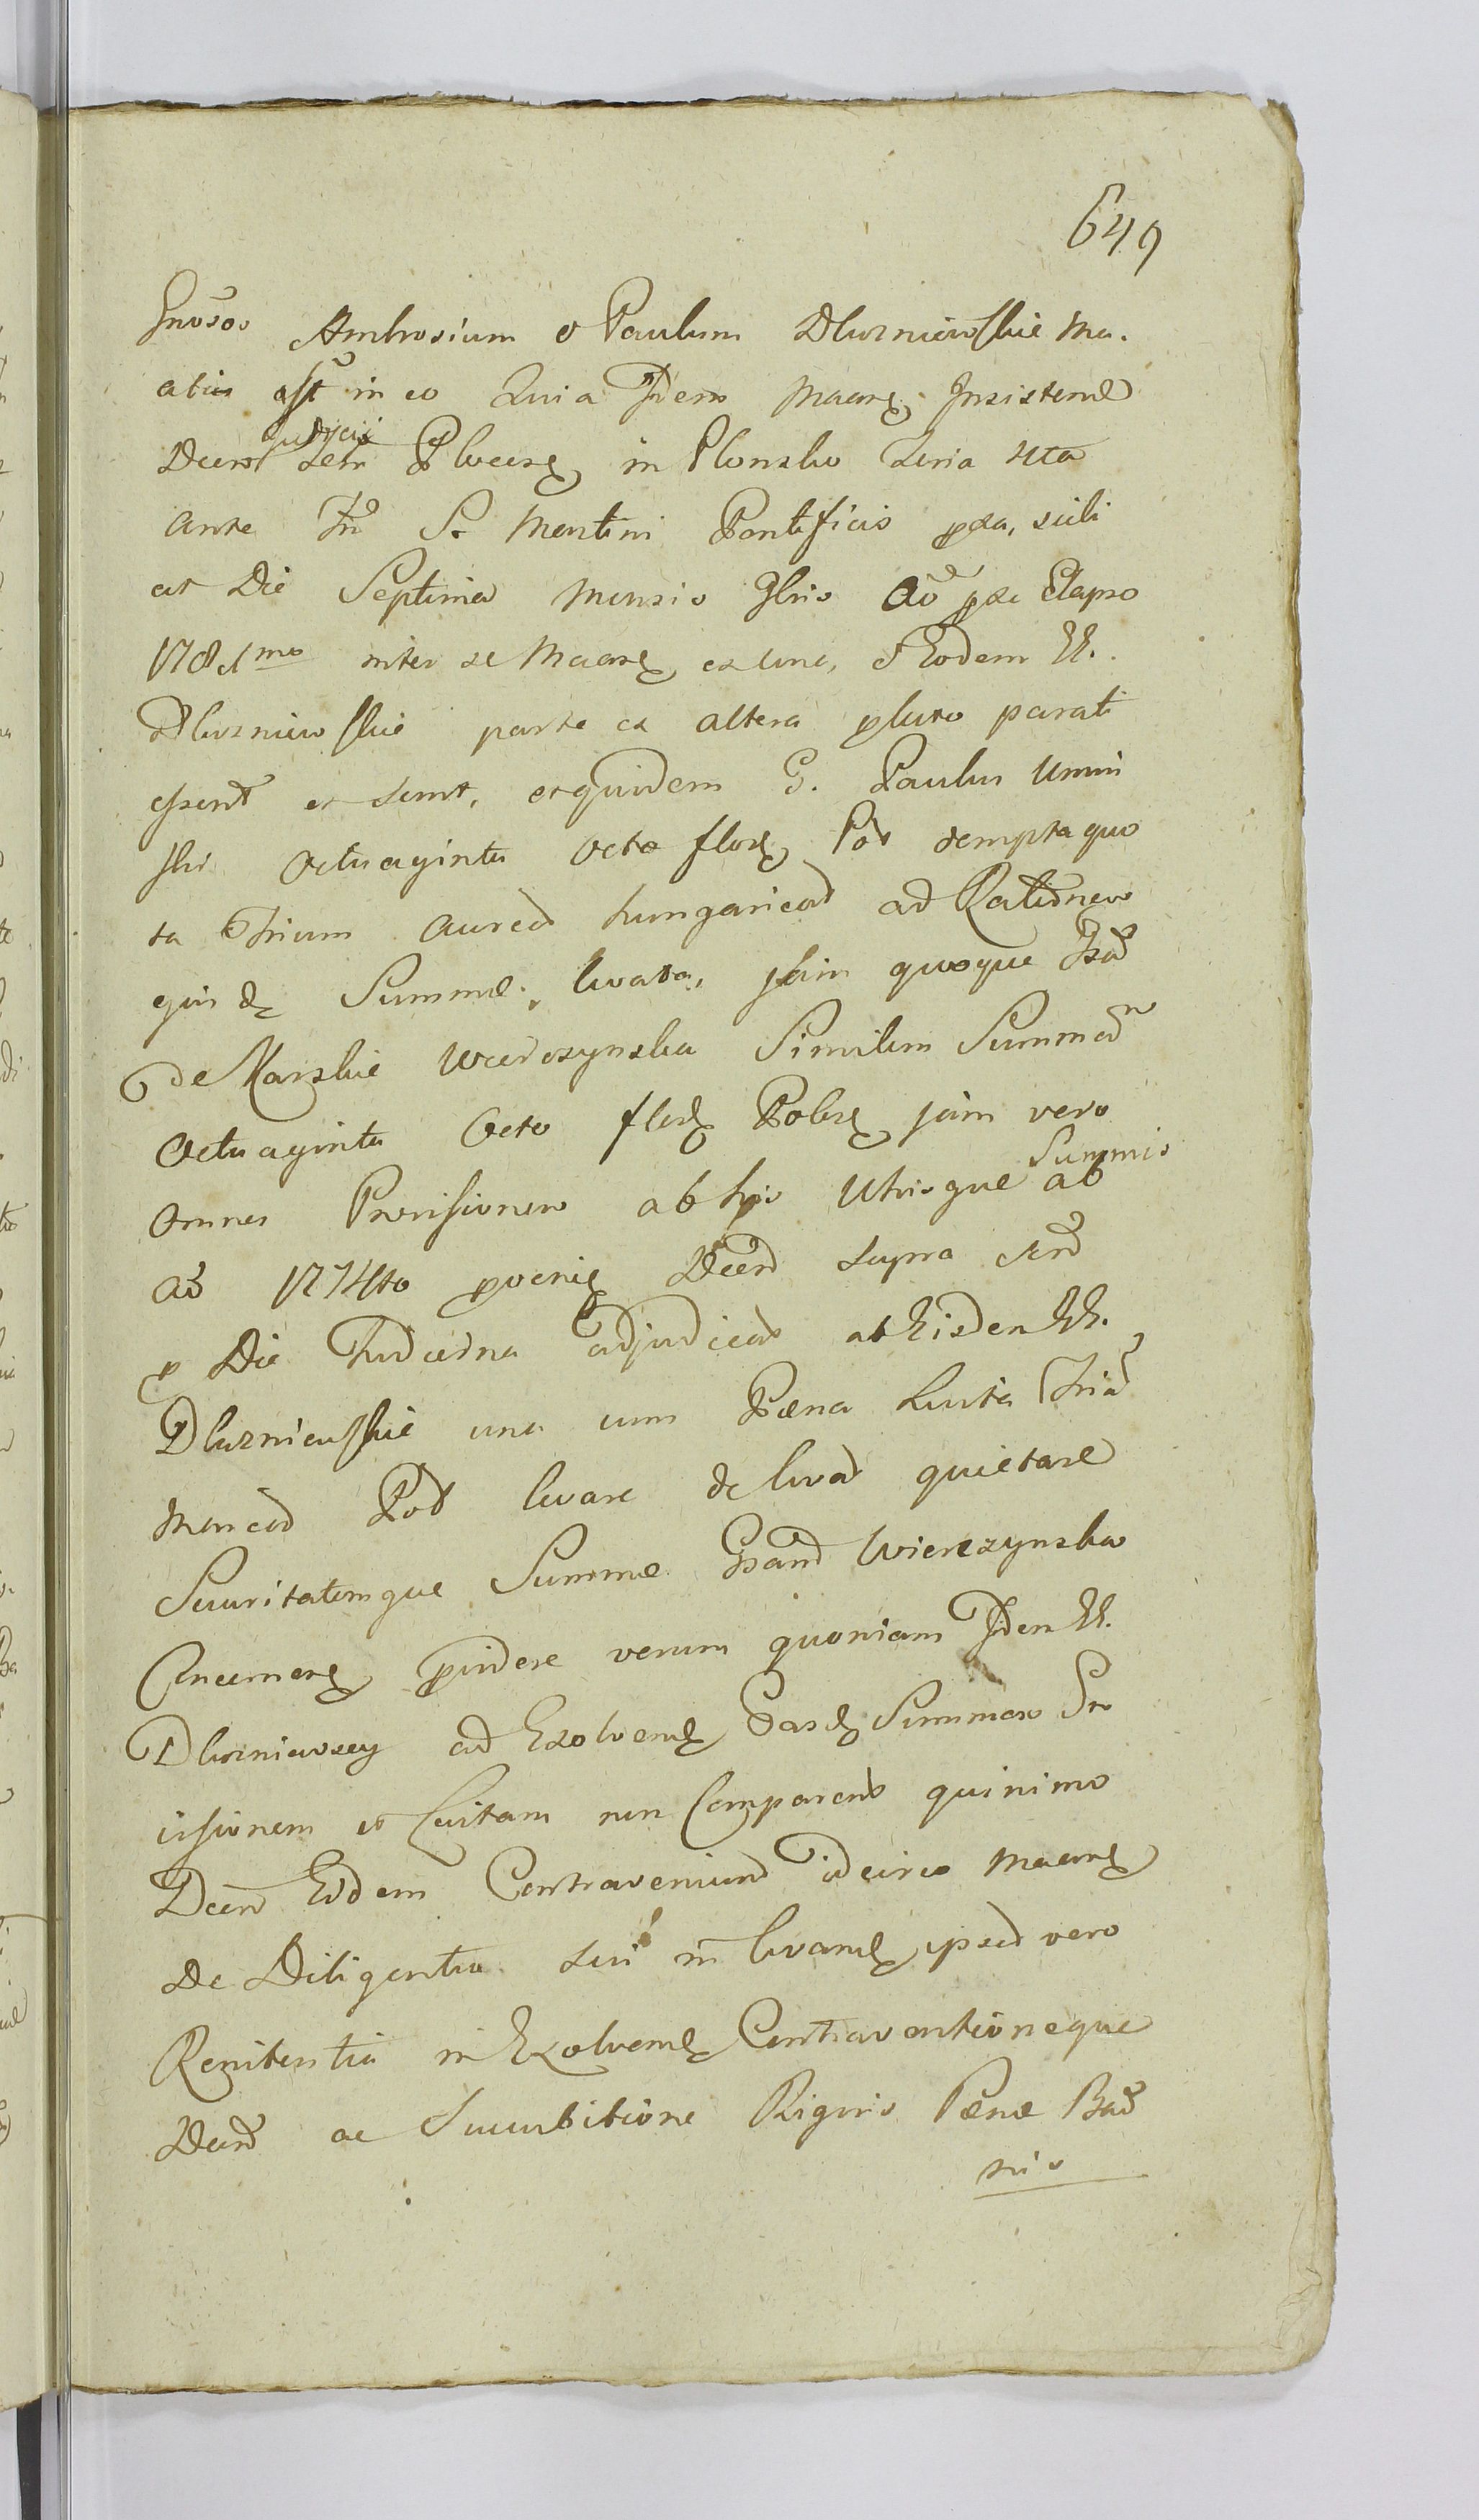 649
Gnosos Ambrosium & Paulum Dluzniewskie Ma-
ctus est in eo Quia Idem Maans Insistend
Decret Judicii Terr Plocens in Plonsko Feria 4ta
ante Fm S. Martini Pontificis pxa, scili
cet Die Septima Mensis 9bris Ao pxe Elapso
1781mo inter se Maans ex una, & Eosdem GG.
Dluzniewskie parte ex altera plato parati
essent et sunt, et quidem G. Paulus Umin
ski Octuaginta Octo flor Pol dempta quo
ta Trium Aureor hungarical ad Rationem
ejusd Summæ levata, jam quoque Gsa
de Karskie Wierczynska Similem Summam
Octuaginta Octo flor Polons jam vero
Omnes Provisiones ab his Utrisque Summis ab
Ao 1774to proveni Decret supra script
p Die Hodierna adjudicat ab Eisdem GG.
Dluzniewskie una cum Pæna Luita Trium
Marcar Pol levare de levat quietare
Securitatemque Summæ Gsam Wierczynska
Concernen pvidere verum quoniam Idem GG.
Dluzniewscy ad Exolvend Easd Summas Pro
visionem et Luitam non Comparent quinimo
Decret Eidem Contraveniunt idcirco Maans
De Diligentia sui in levand ipsor vero
Renitentia in Exolvend Contraventioneque
Decret ac Succubitione Rigoris Pænæ Ban
nis